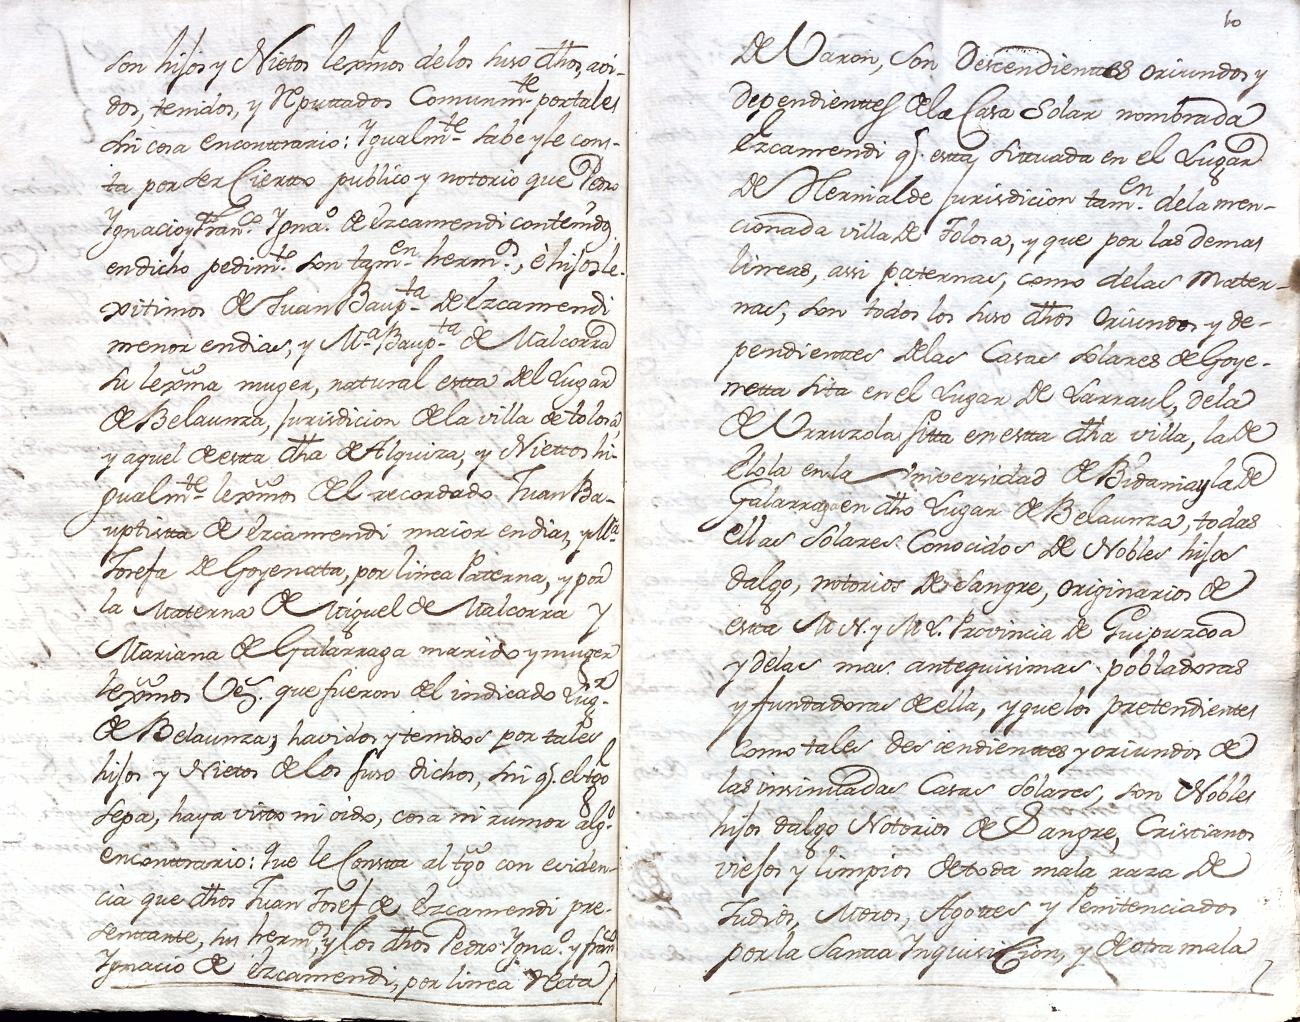 son hijos y Nietos lexmos delos suso dhos, avi-
dos, tenidos, y Rputtados Comunmte. por tales
sin cosa encontrario: Ygualmte. sabe y le cons-
ta por ser Ciertto publico y notorio que Pedro
Ygnacio y Franco. Ygnao. de Ezcamendi contenidos
en dicho pedimto. son tamen. hermos., è hijos le-
xitimos de Juan Baupta. de Ezcamendi
menor en dias, y Ma. Baupta. de Malcorra
su lexma muger, natural estta del Lugar
de Belaunza, jurisdicion de la villa de tolosa,
y aquel de estta dha de Alquiza, y Niettos hi-
gualmte. lexmos del recordado Juan Ba-
uptistta de Ezcamendi maior en dias, y Ma.
Josefa de Goyenetta, por linea Paterna, y por
la Materna de Miguel de Malcorra y
Mariana de Galarraga marido y muger
lexmos Vezs. que fueron del indicado Lugr.
de Belaunza; havidos y tenidos por tales
hijos y Nietos de los suso dichos, sin q. el tgo
sepa, haya visto ni oido, cosa ni rumor algo.
enconttrario: Que le Constta al tgo con eviden-
cia que dhos Juan Josef de Ezcamendi pre-
senttante, sus hermos, y los dhos Pedro Ygnao. y Franco
Ygnacio de Ezcamendi, por linea recta
60
De Varon, son Descendienttes oriundos y
dependienttes dela Casa Solar nombrada
Ezcamendi q. estta sittuada en el Lugar
de Hernialde jurisdicion tamen. dela men-
cionada villa de Tolosa, y que por las demas
lineas, assi paternas, como delas Mater-
nas, son todos los suso dhos Oriundos y de-
pendienttes delas Casas solares de Goye-
netta sita en el Lugar de Larraul, dela
de Urruzola sitta en estta dha villa, la de
Elola en la Universidad de Bidania y la de
Galarraga en dho Lugar de Belaunza, todas
ellas Solares Conocidos de Nobles hijos
dalgo, notorios de sangre, originarios de
estta M. N. y M. L. Provincia de Guipuzcoa
y delas mas antequisimas pobladoras
y fundadoras de ella, y que los pretendientes
Como tales descendienttes y oriundos de
las insinuadas Casas Solares, son Nobles
hijos dalgo Notorios de Sangre, Cristianos
viejos y limpios de toda mala raza de
Judios, Moros, Agottes y Penitenciados
por la Santta Inquisicion, y de otra mala